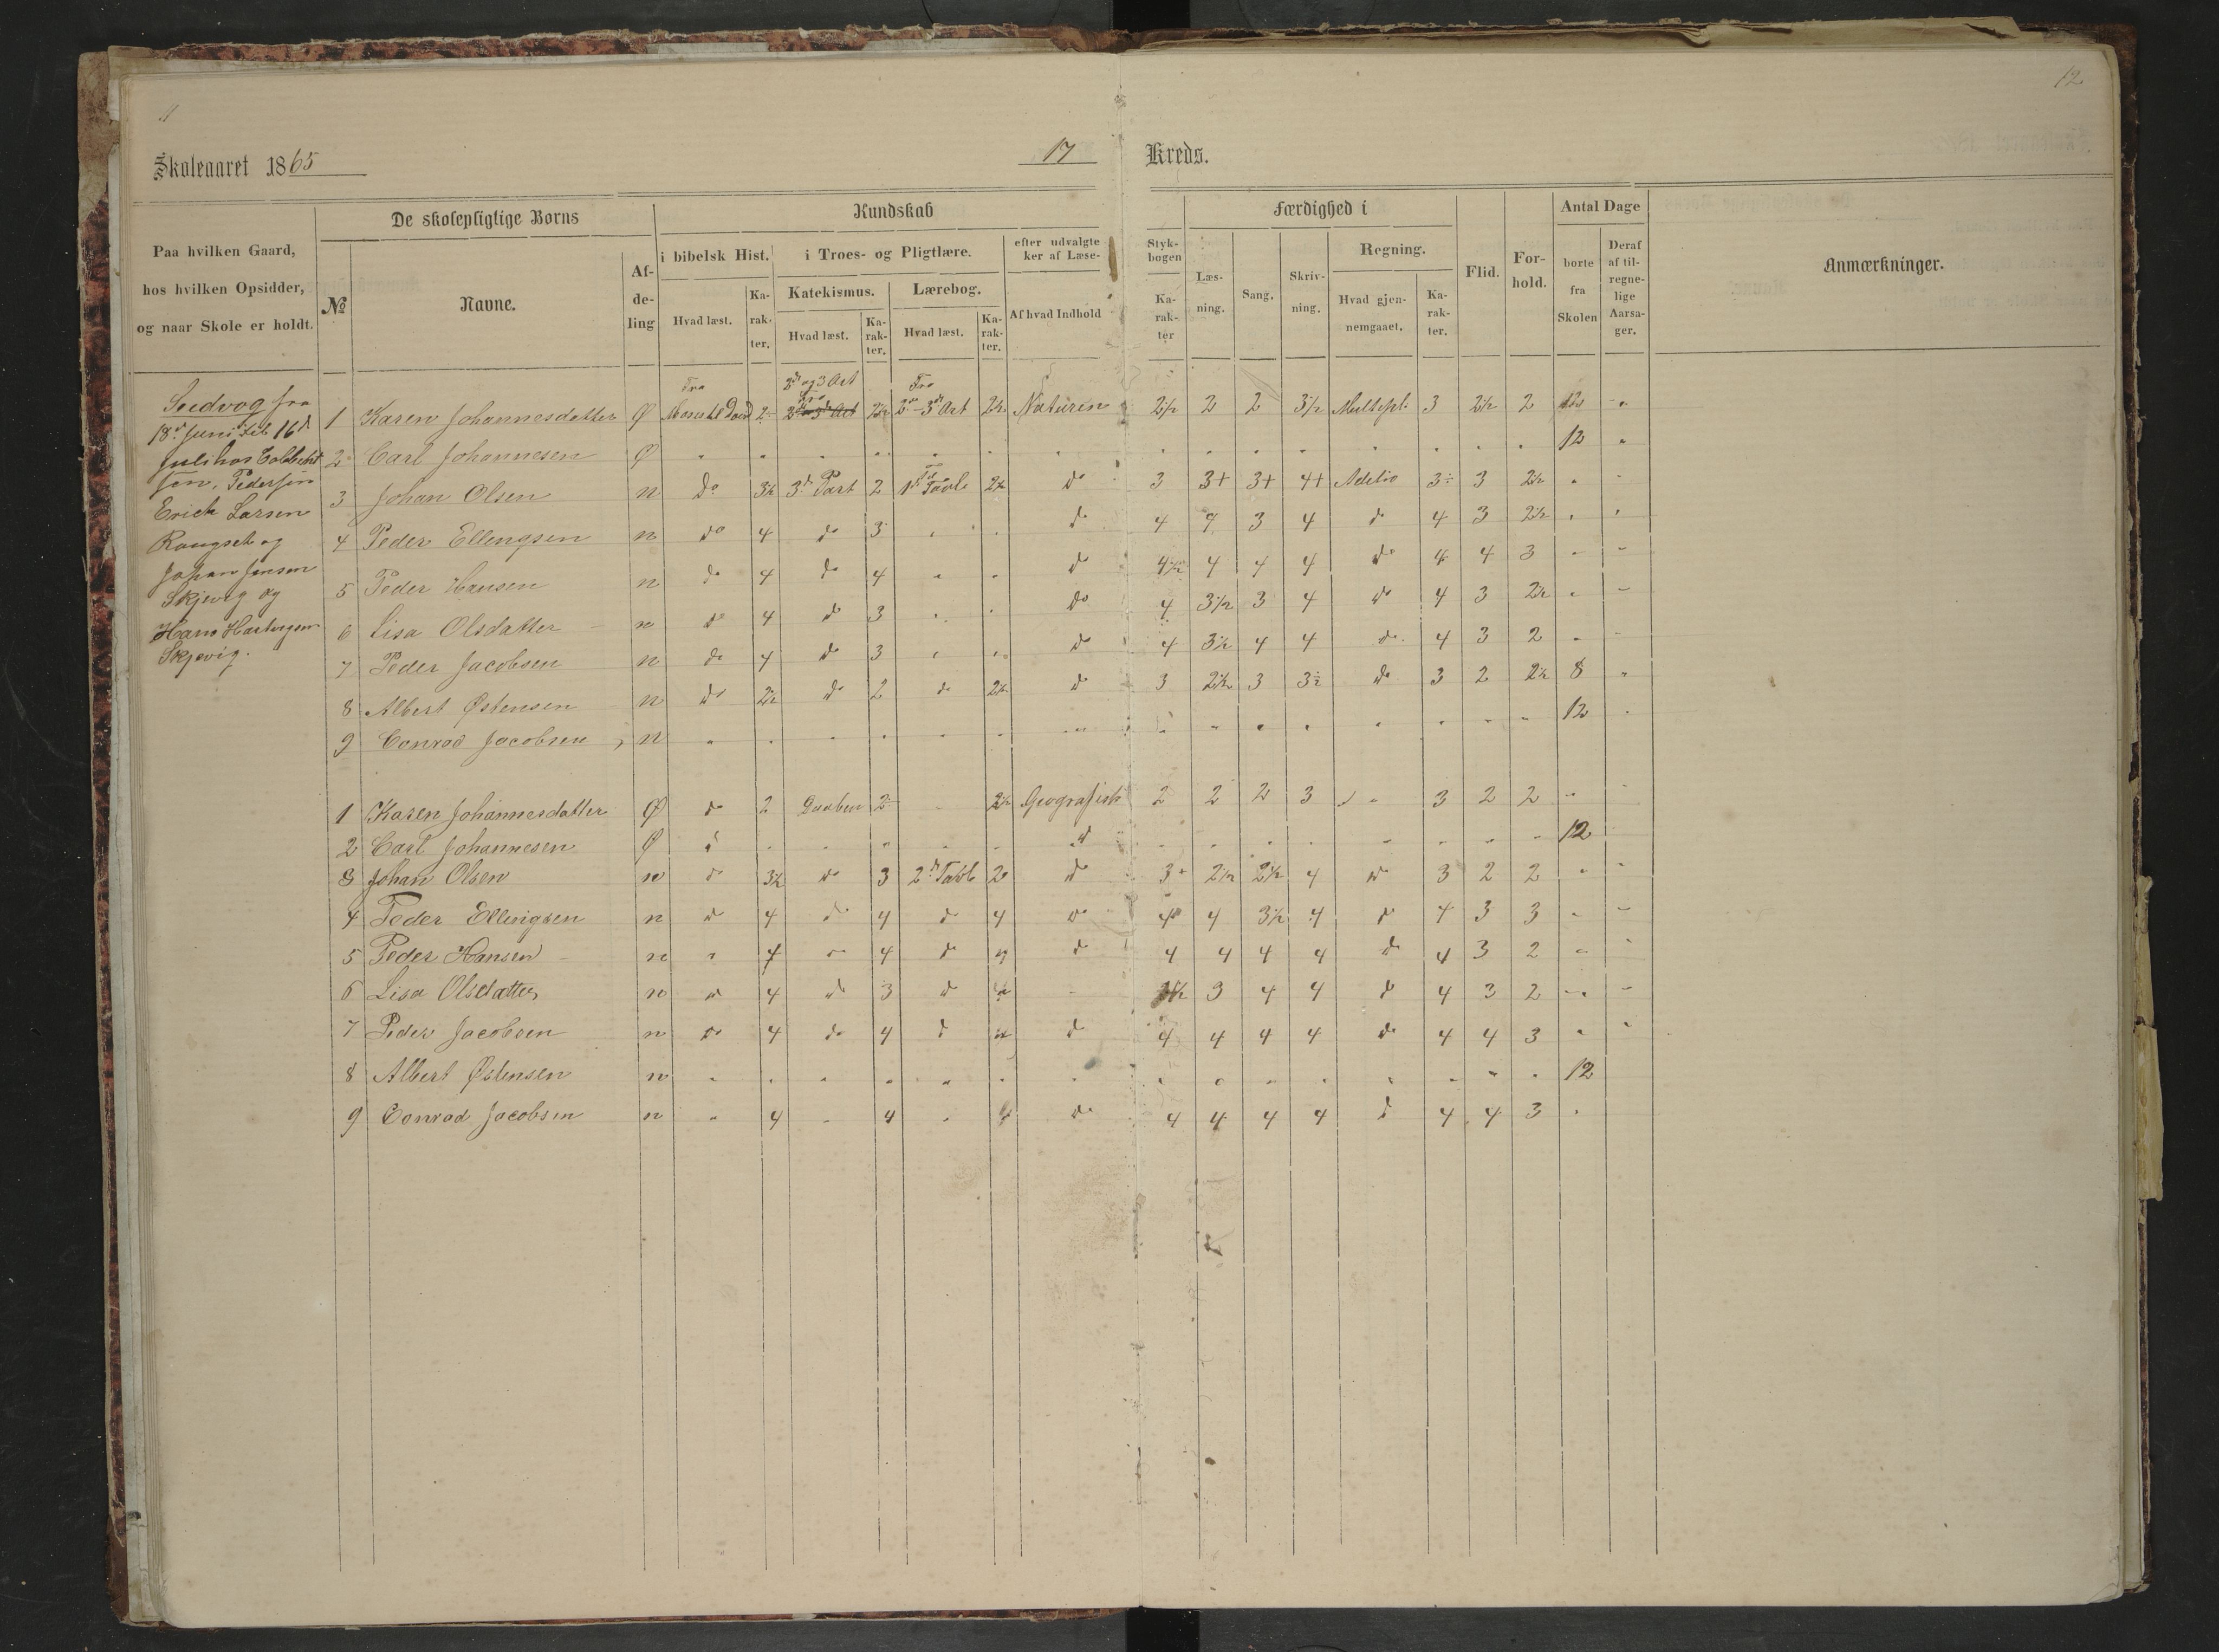 11
12
Skoleaaret 1865
17 Kreds.
Paa hvilken Gaard,
hos hvilken Opsidder,
og naar Skole er holdt.
De skolepligtige Børns
№
Navne.
Af-
de-
ling
Kundskab
i bibelsk Hist.
Hvad læst.
Ka-
rak-
ter.
i Troes- og Pligtlære.
Katekismus.
Hvad læst.
Ka-
rak-
ter.
Lærebog.
Hvad læst.
Ka-
rak-
ter.
efter udvalgte
ker af Læse-
Af hvad Indhold
Styk-
bogen
Ka-
rak-
ter
Færdighed i
Læs-
ning.
Sang.
Skriv-
ning.
Regning.
Hvad gjen-
nemgaaet.
Ka-
rak-
ter.
Flid.
For-
hold.
Antal Dage
borte
fra
Skolen
Deraf
af til-
regne-
lige
Aarsa-
ger.
Anmærkninger.
fra
18d Juni til 16d
Juli hos
Pedersen
Erich Larsen
og
Johan Jensen
Skjevig og
Hans
Skjevig.
Fra 2d og 3 Art Fra
1 Karen Johannesdatter Ø Mose til David 2 2½ 2den-3die Art 2½ Naturen 2½ 2 2 3½ Multipl. 3 2½ 2
2 Carl Johannesen Ø " " " " " " " " " " " " " " " 12 "
3 Johan Olsen n do 3½ 3d Part 2 1ste Tavle 2½ do 3 3+ 3+ 4+ Aditio 3÷ 3 2½ "
4 Peder Ellengsen n do 4 do 3 " " do 4 4 3 4 do 4 3 2½ " "
5 Peder Hansen n do 4 do 4 " " do 4½ 4 4 4 do 4 4 3 " "
6 Lisa Olsdatter n do 4 do 3 " " do 4 3½ 3 4 do 4 3 2½ " "
7 Peder Jacobsen n do 4 do 3 " " do 4 3½ 4 4 do 4 3 2 " "
8 Albert Østensen n do 2½ do 2 do 2½ do 3 2½ 3 3½ do 3 2 2½ 8 "
9 Conrad Jacobsen n " " " " " " " " " " " " " " " 12 "
1 Karen Johannesdatter Ø do 2 Daaben 2 " 2½ Geografisk 2 2 2 3 " 3 2 2 " "
2 Carl Johannesen Ø d " " " " " d " " " " " " " " 12
3 Johan Olsen n do 3½ do 3 2d Tavle 2 do 3+ 2½ 2½ 4 do 3 2 2 " "
4 Peder Ellengsen n do 4 do 4 do 4 do 4 4 3½ 4 do 4 3 3 " "
5 Peder Hansen n " 4 do 4 do 4 do 4 4 4 4 do 4 3 2 " "
6 Lisa Olsdatter n do 4 do 3 do 3 4 4 do 4 3 2 " "
7 Peder Jacobsen n do 4 do 4 do do 4 4 4 4 do 4 4 3 " "
8 Albert Østensen n " " " " " " " " " " " " " " " 12
9 Conrad Jacobsen n " 4 " 4 " 4 do 4 4 4 4 do 4 4 3 "